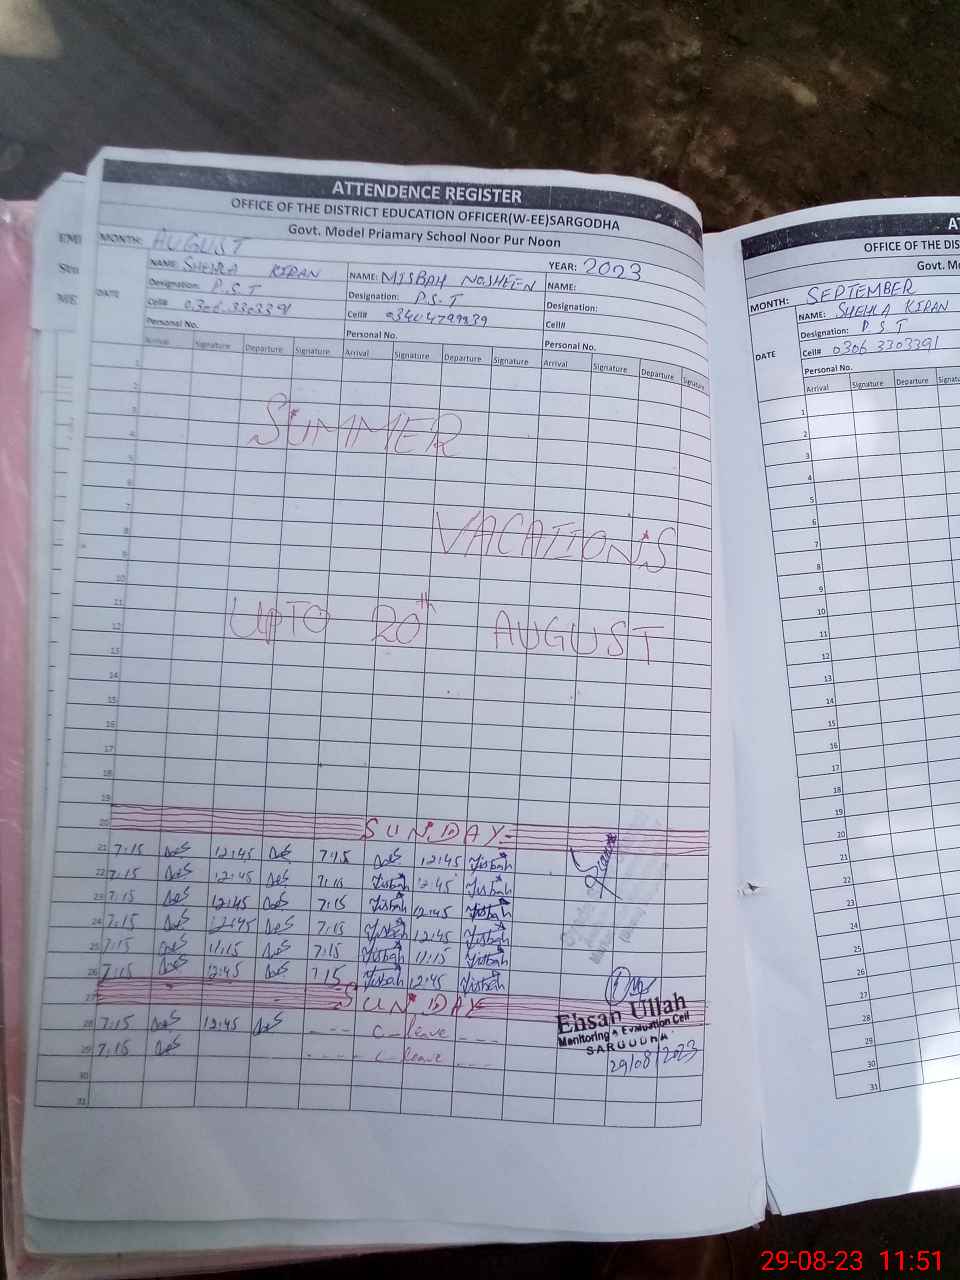 ATTENDENCE REGISTER
OFFICE OF THE DISTRICT EDUCATION OFFICER(W-EE)SARGODHA
Govt. Model Priamary School Noor Pur Noon
MONTH: AUGUST
YEAR: 2023
DATE
NAME: SHEHLA KIRAN NAME: MISBAH NOSHEEN NAME:
Designation: P.S.T Designation: P.S.T Designation:
Cell# 0306 3303391 Cell# 03404799939 Cell#
Personal No. Personal No. Personal No.
Arrival Signature Departure Signature Arrival Signature Departure Signature Arrival Signature Departure Signature
1
2
3
4
SUMMER
5
6
7
8
VACATIONS
9
10
11
12
UPTO 20th AUGUST
13
14
15
16
17
18
19
20 SUNDAY
21 7:15 12:45 7:15 12:45 Misbah
22 7:15 12:45 7:15 Misbah 12:45 Misbah
23 7:15 12:45 7:15 Misbah 12:45 Misbah
24 7:15 12:45 7:15 Misbah 12:45 Misbah
25 7:15 11:15 7:15 Misbah 11:15 Misbah
26 7:15 12:45 7:15 Misbah 12:45 Misbah
27 SUNDAY
28 7:15 12:45 ---- C-leave ---
29 7:15 ----- C-leave ---
30
31
Ehsan Ullah
Monitoring & Evaluation Cell
SARGODHA
29/08/2023
EMI
ME
OFFICE OF THE DIS
Govt. M
MONTH: SEPTEMBER
NAME: SHEHLA KIRAN
Designation: P S T
DATE
Cell# 0306 3303391
Personal No.
Arrival Signature Departure
1
2
3
4
5
6
7
8
9
10
11
12
13
14
15
16
17
18
19
20
21
22
23
24
25
26
27
28
29
30
31
29-08-23 11:51